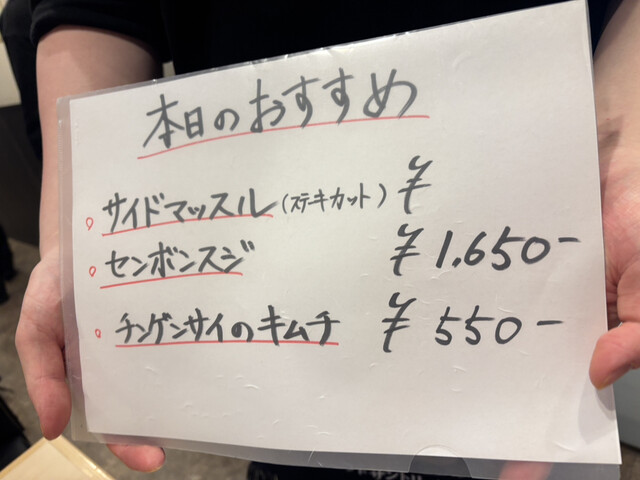 本日のおすすめ
サイドマッスル(ステキカット) ¥
センボンスジ ¥1,650-
チンゲンサイのキムチ ¥550-